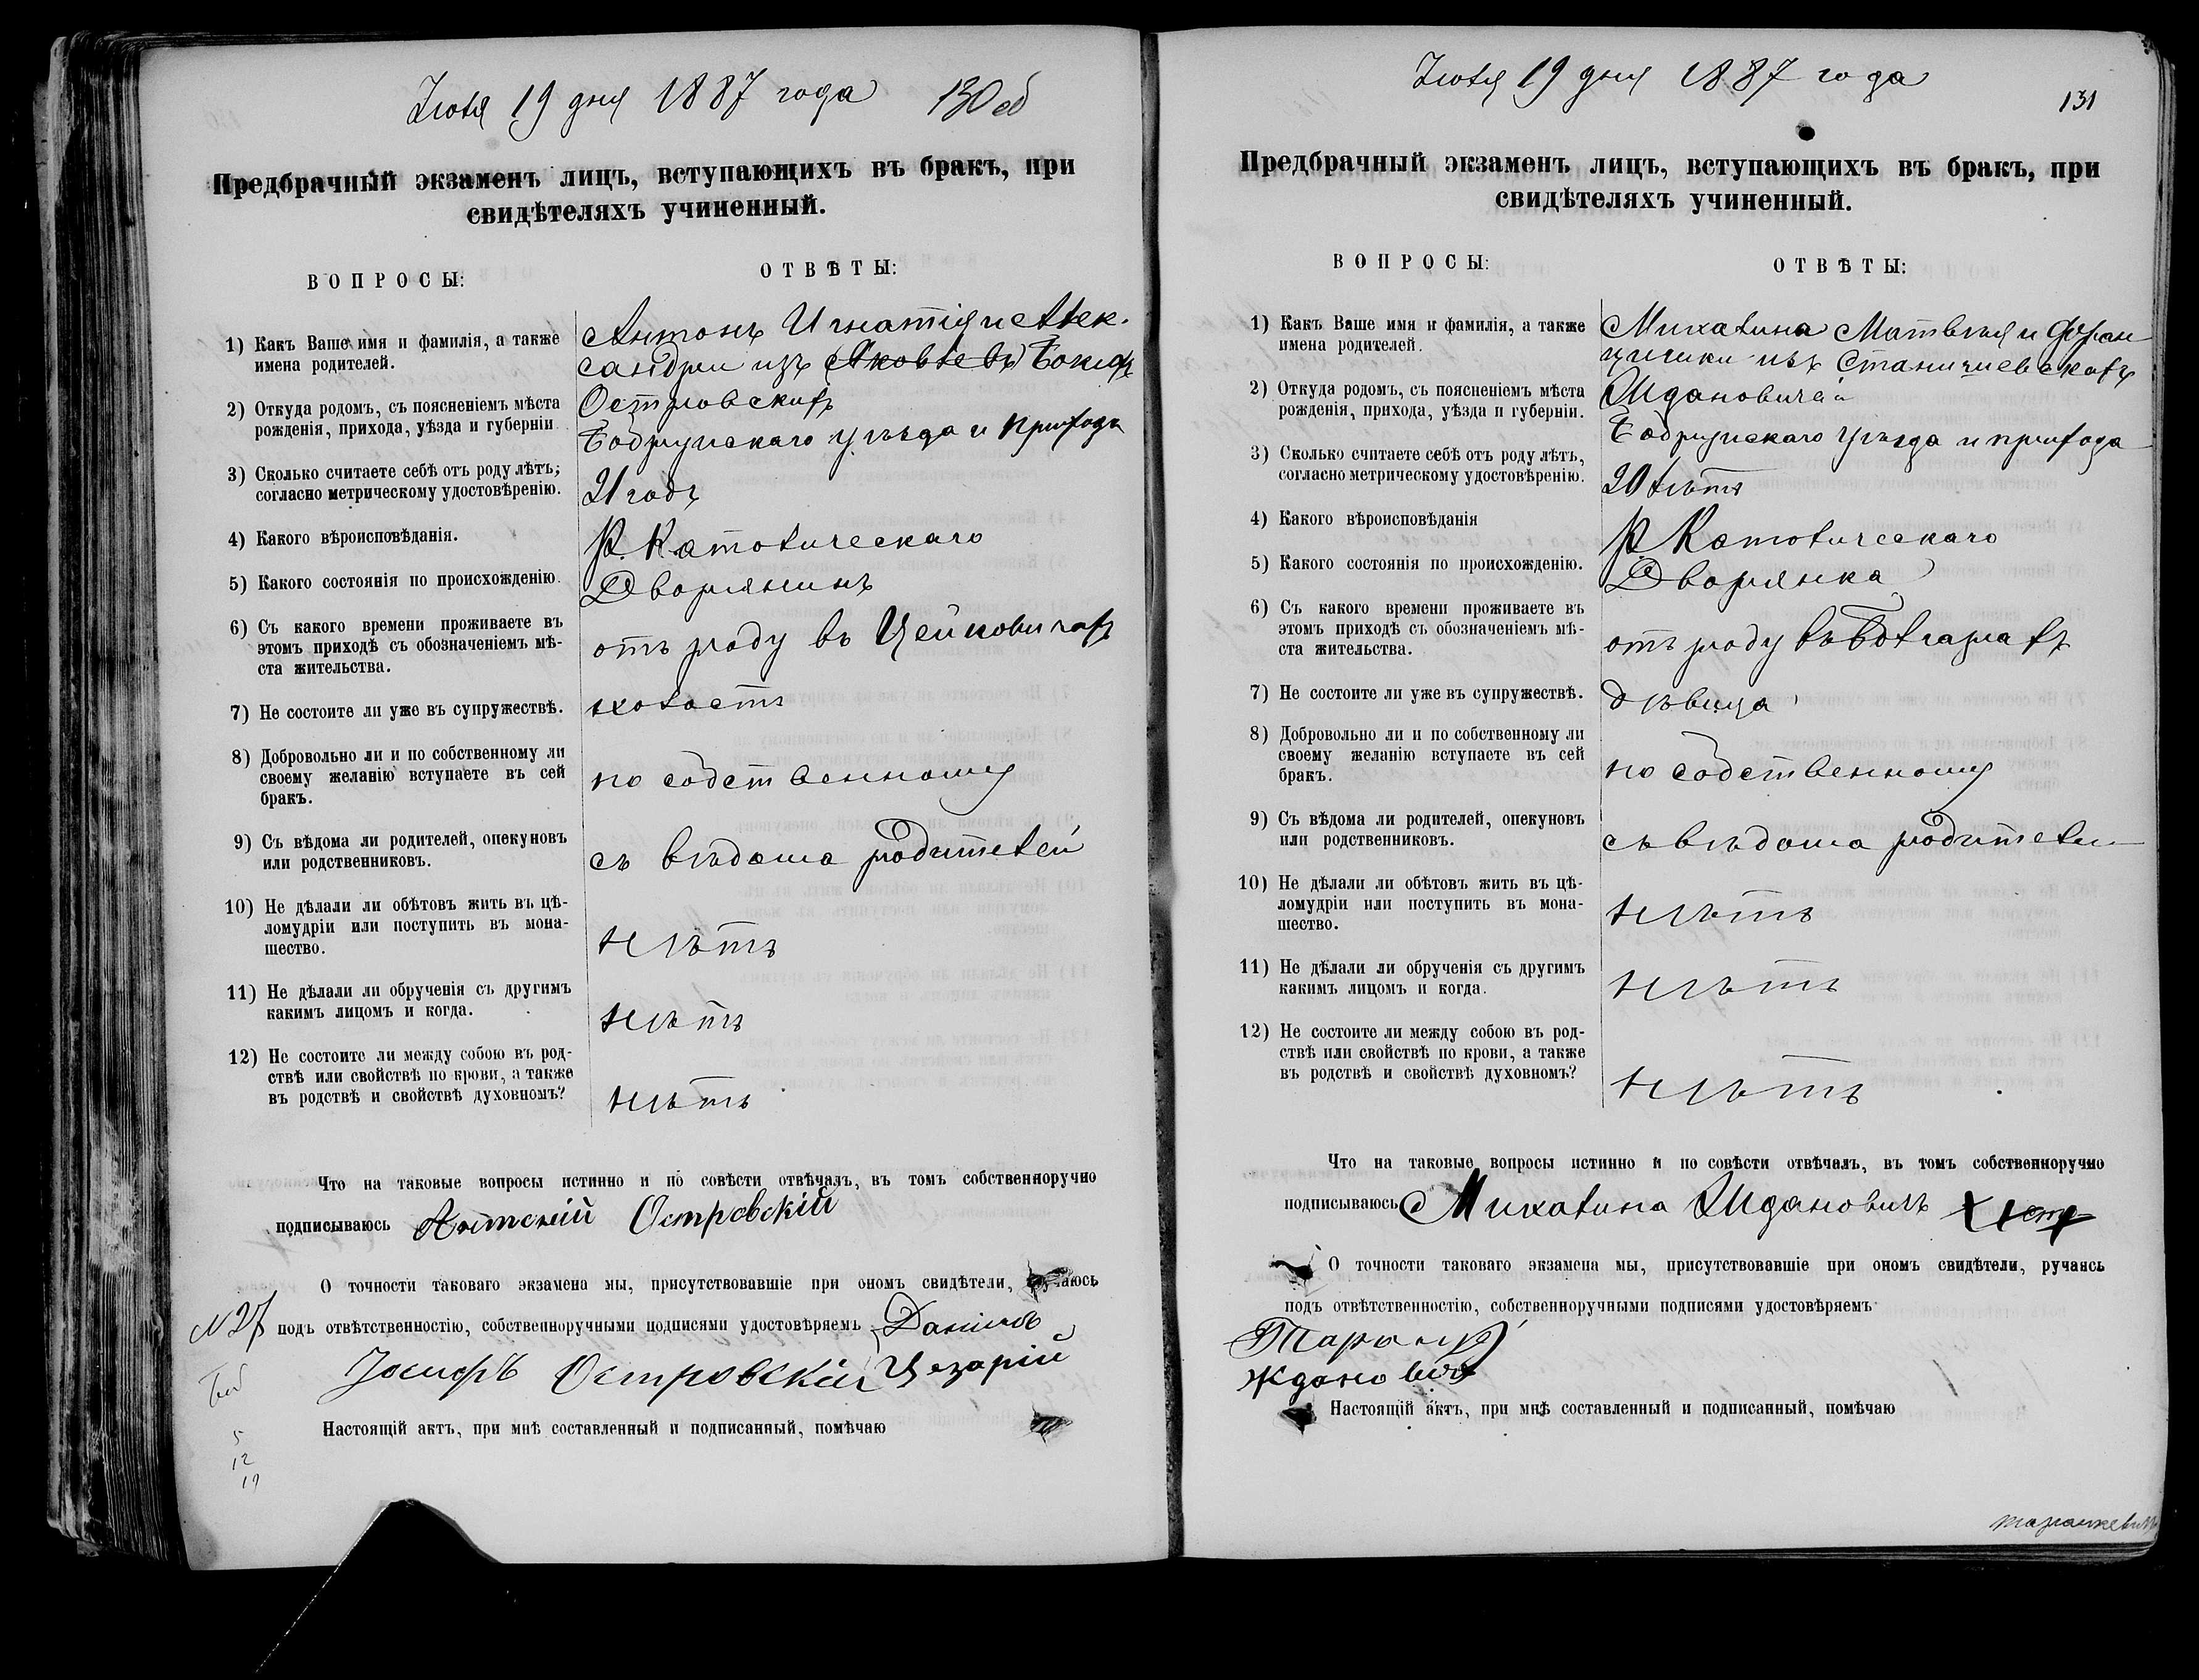 Іюля 19 дня 1887 года 130 об
Предбрачный экзаменъ лицъ, вступающихъ въ бракъ, при
свидѣтеляхъ учиненный.
ВОПРОСЫ: ОТВѢТЫ:
1) Какъ Ваше имя и фамилія, а также
имена родителей.
Антонъ Игнатія и Алек-
сандры изъ
2) Откуда родомъ, съ поясненіемъ мѣста
рожденія, прихода, уѣзда и губерніи
Островскихъ
Бобруйскаго уѣзда и прихода
3) Сколько считаете себѣ отъ роду лѣтъ,
согласно метрическому удостовѣренію.
21 годъ
4) Какого вѣроисповѣданія.
Р. Католическаго
5) Какого состоянія по происхожденію.
Дворянинъ
6) Съ какого времени проживаете въ
этомъ приходѣ съ обозначеніемъ мѣ-
ста жительства.
отъ роду въ
7) Не состоите ли уже въ супружествѣ.
холостъ
8) Добровольно ли и по собственному ли
своему желанію вступаете въ сей
бракъ.
по собственному
9) Съ вѣдома ли родителей, опекуновъ
или родственниковъ.
съ вѣдома родителей
10) Не дѣлали ли обѣтовъ жить въ цѣ-
ломудріи или поступить въ мона-
шество.
нѣтъ
11) Не дѣлали ли обрученія съ другимъ
какимъ лицомъ и когда.
нѣтъ
12) Не состоите ли между собою въ род-
ствѣ или свойствѣ по крови, а также
въ родствѣ и свойствѣ духовномъ?
нѣтъ
Что на таковые вопросы истинно и по совѣсти отвѣчалъ, въ томъ собственноручно
подписываюсь Антоній Островскій
О точности таковаго экзамена мы, присутствовавшіе при ономъ свидѣтели,
N 27 подъ отвѣтственностію, собственноручными подписями удостовѣряемъ
Іосифъ Островскій Цезарій
Настоящій актъ, при мнѣ составленный и подписанный, помѣчаю
5
12
19
Іюля 19 дня 1887 года
131
Предбрачный экзаменъ лицъ, вступающихъ въ бракъ, при
свидѣтеляхъ учиненный.
ВОПРОСЫ: ОТВѢТЫ:
1) Какъ Ваше имя и фамилія, а также
имена родителей.
Михалина Матвѣя и Фран
цишки изъ Станишевскихъ
2) Откуда родомъ, съ поясненіемъ мѣста
рожденія, прихода, уѣзда и губерніи.
Ждановичей
Бобруйскаго уѣзда и прихода
3) Сколько считаете себѣ отъ роду лѣтъ,
согласно метрическому удостовѣренію.
20 лѣтъ
4) Какого вѣроисповѣданія
Р. Католическаго
5) Какого состоянія по происхожденію.
Дворянка
6) Съ какого времени проживаете въ
этомъ приходѣ съ обозначеніемъ мѣ-
ста жительства.
отъ роду въ Болгарахъ
7) Не состоите ли уже въ супружествѣ.
дѣвица
8) Добровольно ли и по собственному ли
своему желанію вступаете въ сей
бракъ.
по собственному
9) Съ вѣдома ли родителей, опекуновъ
или родственниковъ.
съ вѣдома родителей
10) Не дѣлали ли обѣтовъ жить въ цѣ-
ломудріи или поступить въ мона-
шество.
нѣтъ
11) Не дѣлали ли обрученія съ другимъ
какимъ лицомъ и когда.
нѣтъ
12) Не состоите ли между собою въ род-
ствѣ или свойствѣ по крови, а также
въ родствѣ и свойствѣ духовномъ?
нѣтъ
Что на таковые вопросы истинно и по совѣсти отвѣчалъ, въ томъ собственноручно
подписываюсь Михалина Ждановичъ
О точности таковаго экзамена мы, присутствовавшіе при ономъ свидѣтели, ручаясь
подъ отвѣтственностію, собственноручными подписями удостовѣряемъ
Настоящій актъ, при мнѣ составленный и подписанный, помѣчаю